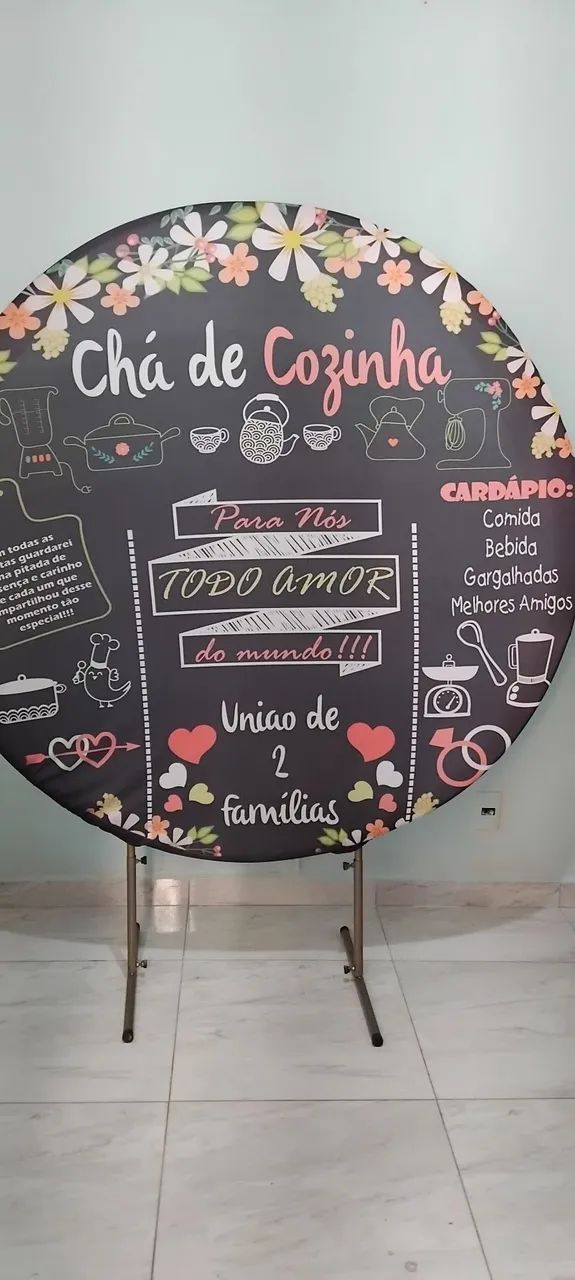 Chá de Cozinha
todas as
guardarei
pitada de
e carinho
cada um que
desse
momento tão
especial!!!
Para Nós
TODO AMOR
do mundo!!!
Uniao de
2
famílias
CARDÁPIO:
Comida
Bebida
Gargalhadas
Melhores Amigos